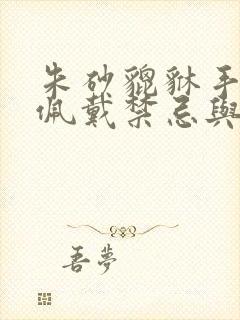 朱砂貔貅手
佩戴禁忌與
吾夢